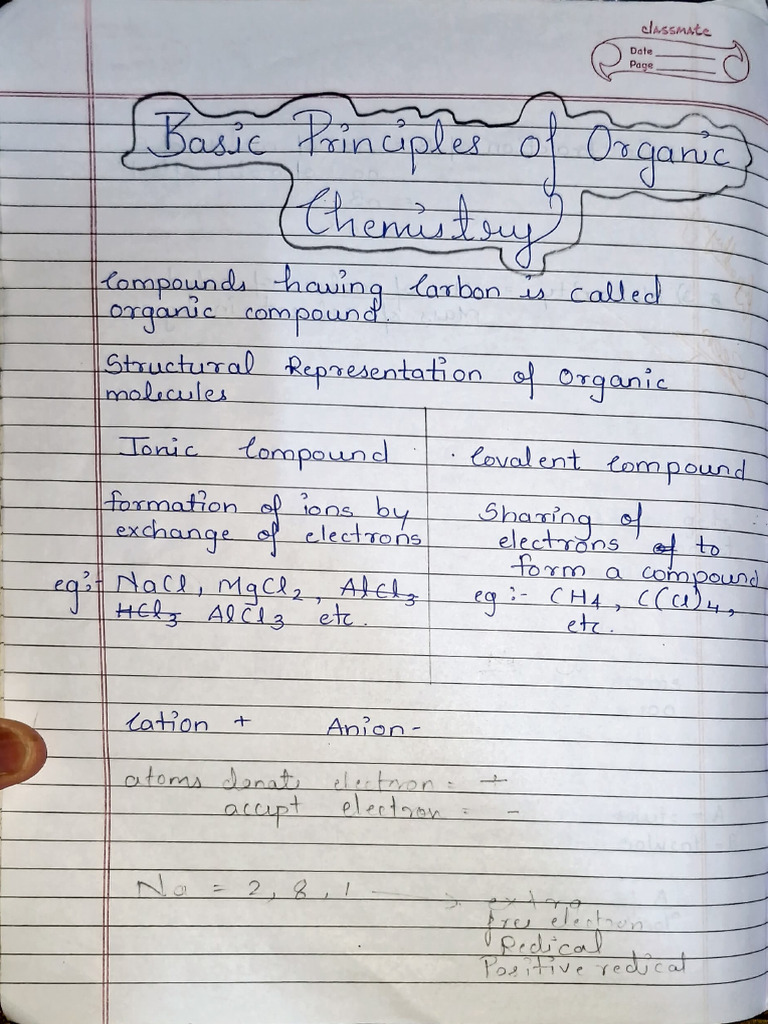 classmate
Date
Page
Basic Principles of Organic
Chemistry
Compounds having Carbon is called
organic compound.
Structural Representation of Organic
molecules
Ionic Compound
formation of ions by
exchange of electrons
eg:- NaCl, MgCl2, AlCl3
HCl3 AlCl3 etc.
Covalent Compound
Sharing of
electrons of to
form a compound
eg:- CH4, C(Cl)4,
etc.
Cation + Anion -
atoms donate electron = +
accept electron = -
Na = 2, 8, 1 → extra
free electron
Redical
Positive redical